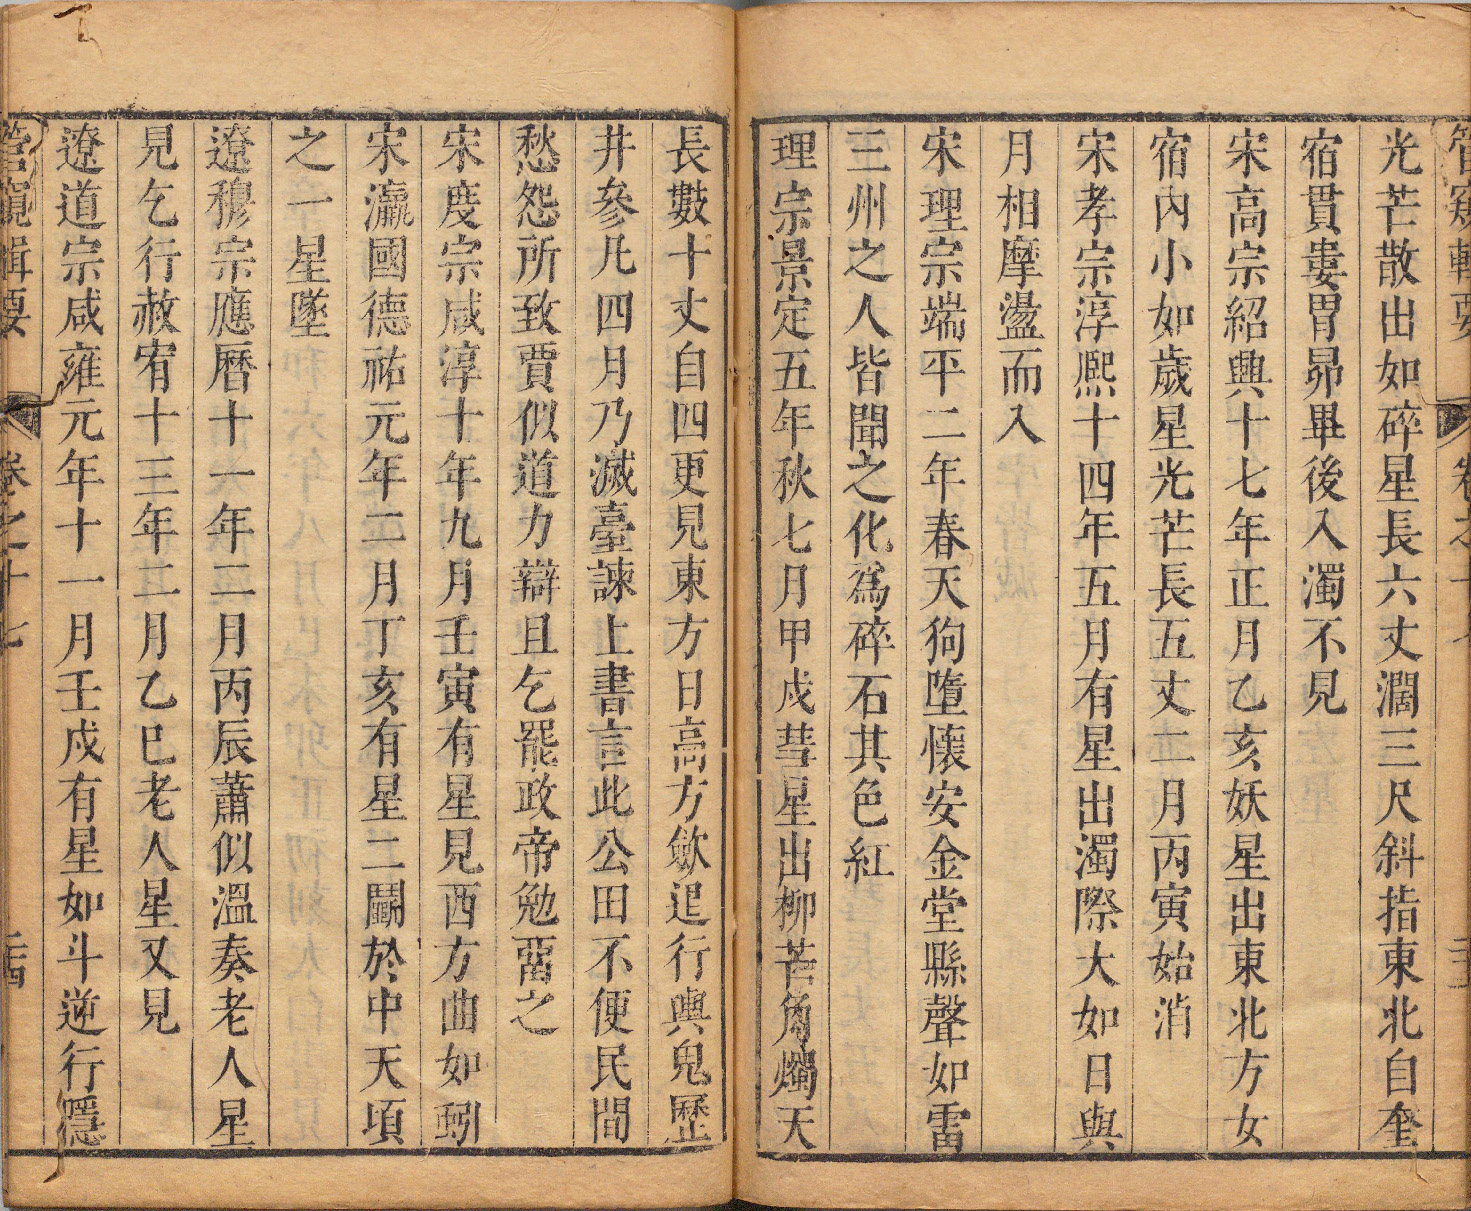 管窺輯要
卷之十七
光芒散出如碎星長六丈濶三尺斜指東北自奎
宿貫婁胃昴畢後入濁不見
宋高宗紹興十七年正月乙亥妖星出東北方女
宿內小如歲星光芒長五丈二月丙寅始消
宋孝宗淳熙十四年五月有星出濁際大如日與
月相摩盪而入
宋理宗端平二年春天狗墮懷安金堂縣聲如雷
三州之人皆聞之化為碎石其色紅
理宗景定五年秋七月甲戍彗星出柳芒角燭天
長數十丈自四更見東方日高方歛退行輿鬼歷
井參凡四月乃滅臺諫上書言此公田不便民間
愁怨所致賈似道力辯且乞罷政帝勉畱之
宋度宗咸淳十年九月壬寅有星見西方曲如蚓
宋瀛國德祐元年二月丁亥有星二鬭於中天頃
之一星墜
遼穆宗應曆十一年二月丙辰蕭似溫奏老人星
見乞行赦宥十三年二月乙巳老人星又見
遼道宗咸雍元年十一月壬戍有星如斗逆行隱
管窺輯要
卷之十七